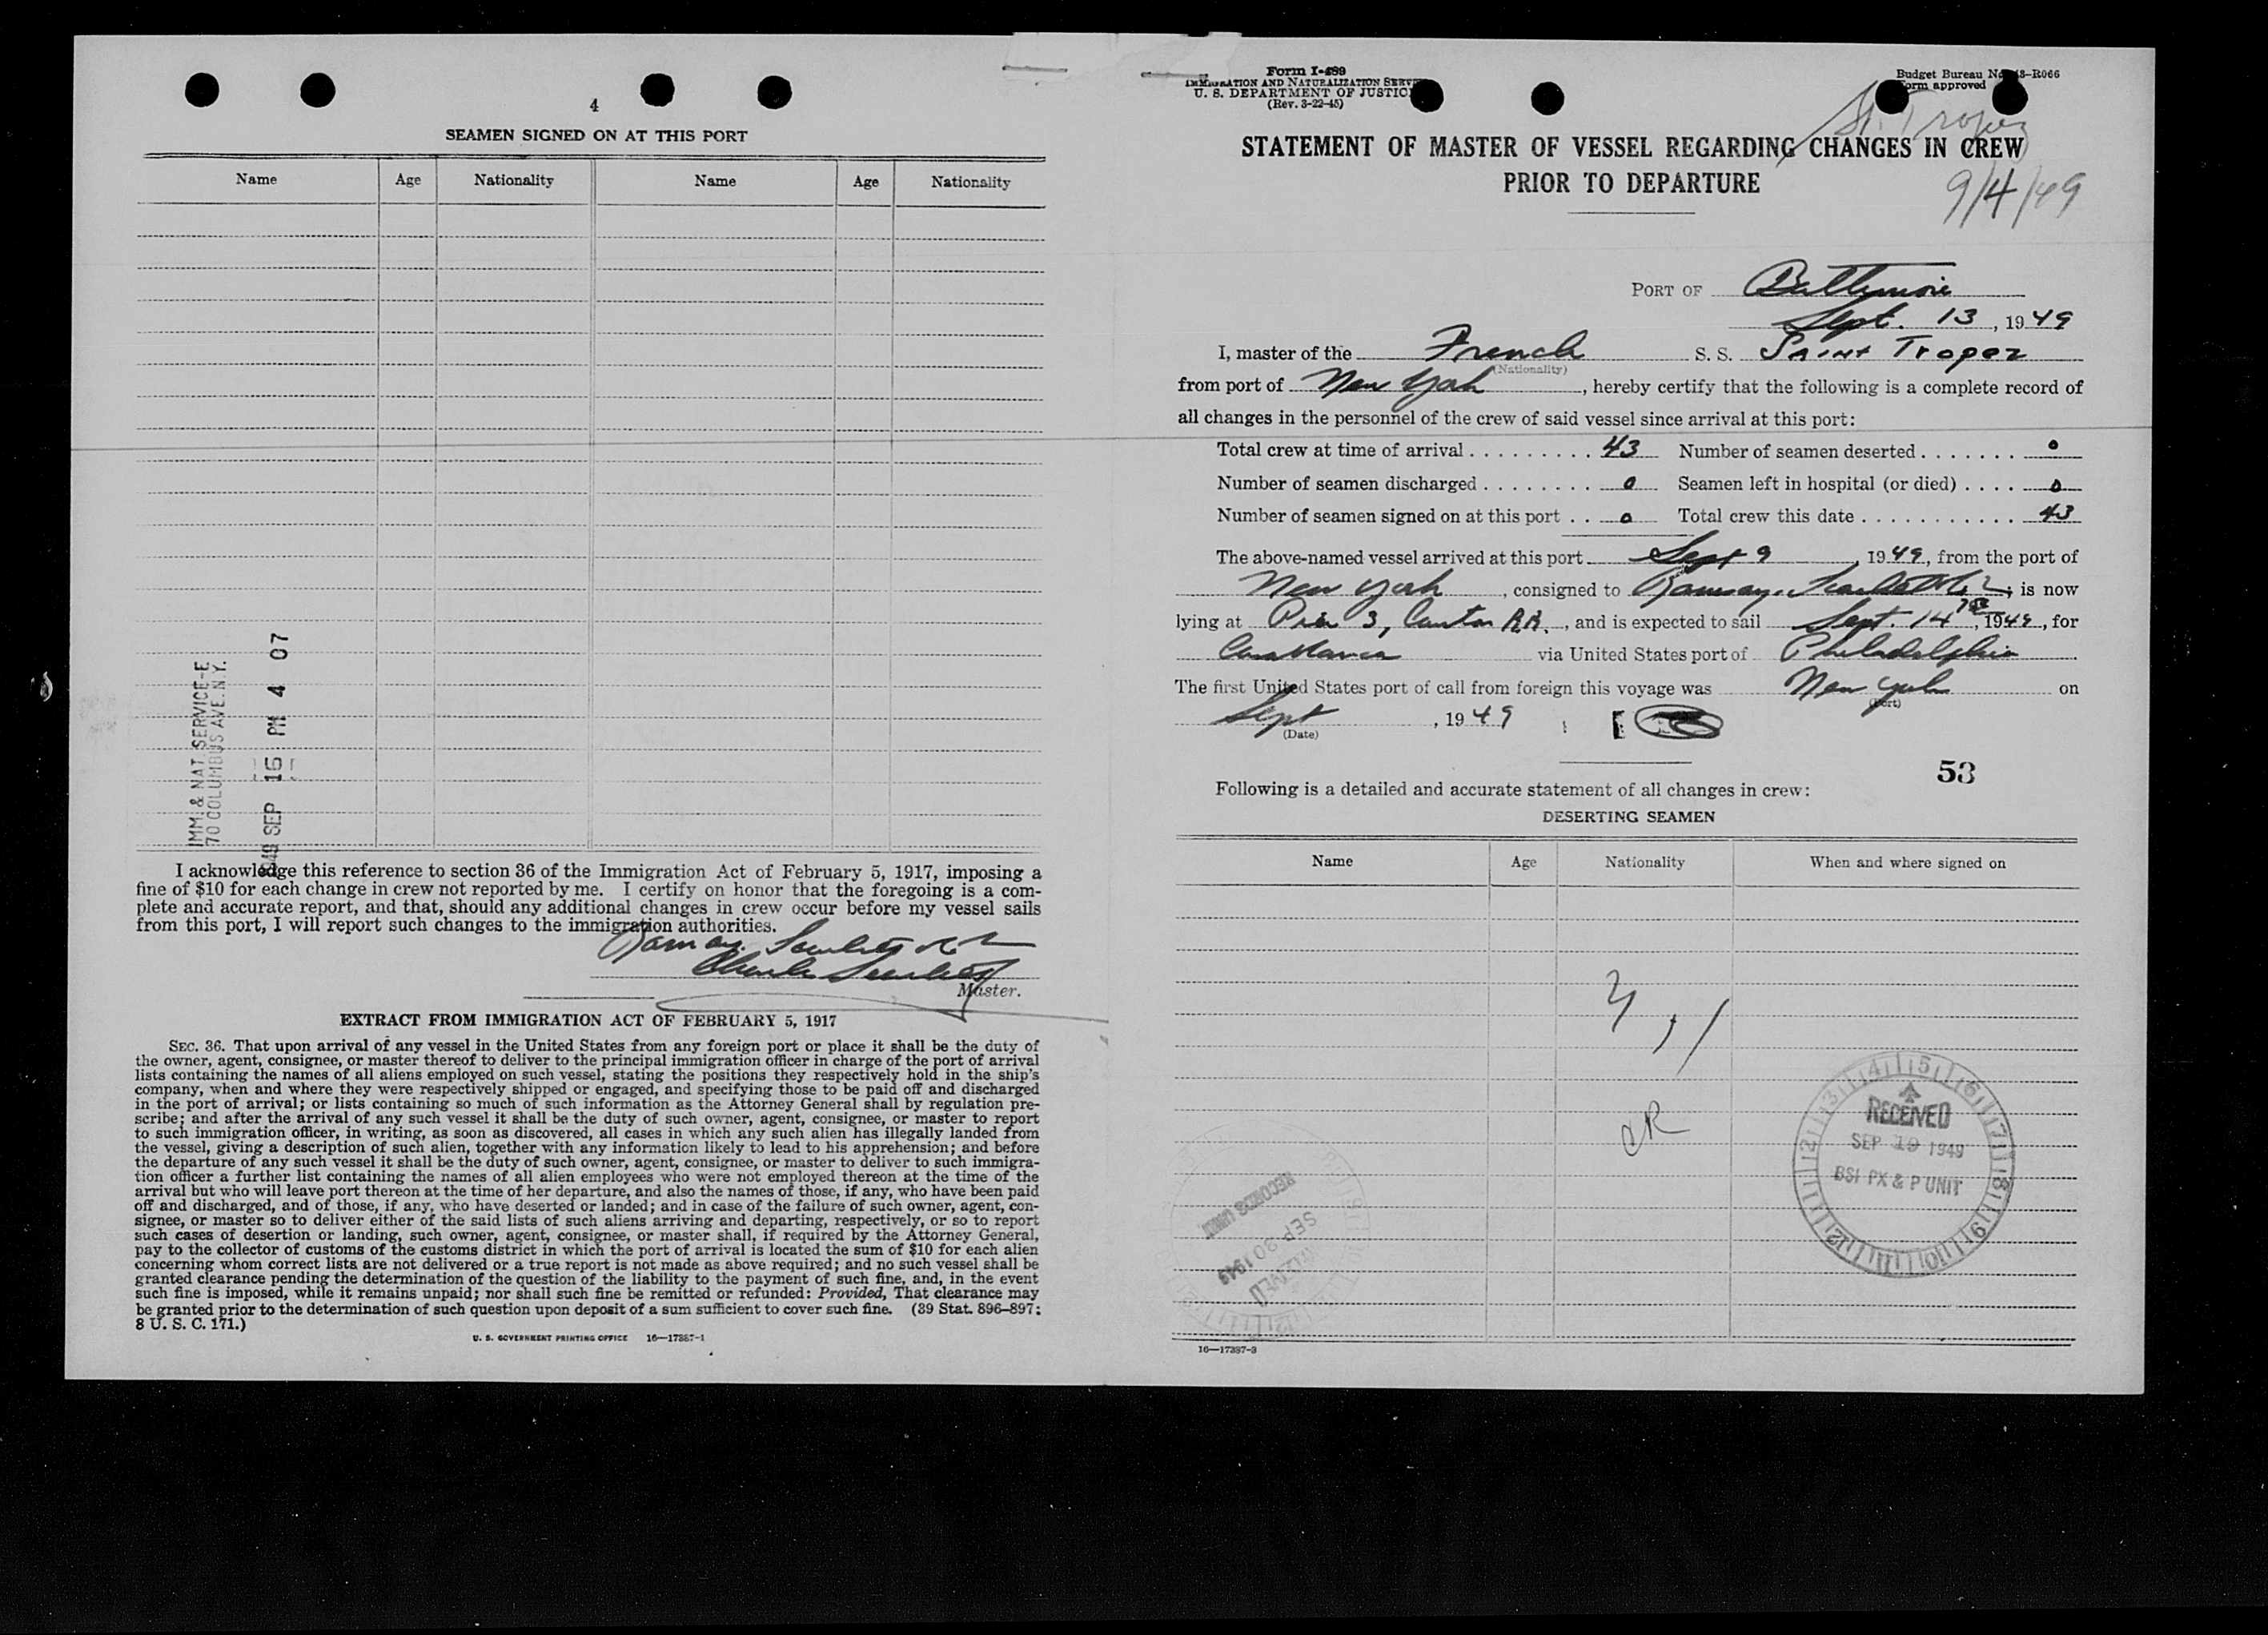 4
SEAMEN SIGNED ON AT THIS PORT
Name Age Nationality Name Age Nationality
IMM. & NAT SERVICE-E
70 COLUMBUS AVE. N.Y.
1949 SEP 16 PM 4 07
I acknowledge this reference to section 36 of the Immigration Act of February 5, 1917, imposing a
fine of $10 for each change in crew not reported by me. I certify on honor that the foregoing is a com-
plete and accurate report, and that, should any additional changes in crew occur before my vessel sails
from this port, I will report such changes to the immigration authorities.
Master.
EXTRACT FROM IMMIGRATION ACT OF FEBRUARY 5, 1917
SEC. 36. That upon arrival of any vessel in the United States from any foreign port or place it shall be the duty of
the owner, agent, consignee, or master thereof to deliver to the principal immigration officer in charge of the port of arrival
lists containing the names of all aliens employed on such vessel, stating the positions they respectively hold in the ship's
company, when and where they were respectively shipped or engaged, and specifying those to be paid off and discharged
in the port of arrival; or lists containing so much of such information as the Attorney General shall by regulation pre-
scribe; and after the arrival of any such vessel it shall be the duty of such owner, agent, consignee, or master to report
to such immigration officer, in writing, as soon as discovered, all cases in which any such alien has illegally landed from
the vessel, giving a description of such alien, together with any information likely to lead to his apprehension; and before
the departure of any such vessel it shall be the duty of such owner, agent, consignee, or master to deliver to such immigra-
tion officer a further list containing the names of all alien employees who were not employed thereon at the time of the
arrival but who will leave port thereon at the time of her departure, and also the names of those, if any, who have been paid
off and discharged, and of those, if any, who have deserted or landed; and in case of the failure of such owner, agent, con-
signee, or master so to deliver either of the said lists of such aliens arriving and departing, respectively, or so to report
such cases of desertion or landing, such owner, agent, consignee, or master shall, if required by the Attorney General,
pay to the collector of customs of the customs district in which the port of arrival is located the sum of $10 for each alien
concerning whom correct lists are not delivered or a true report is not made as above required; and no such vessel shall be
granted clearance pending the determination of the question of the liability to the payment of such fine, and, in the event
such fine is imposed, while it remains unpaid; nor shall such fine be remitted or refunded: Provided, That clearance may
be granted prior to the determination of such question upon deposit of a sum sufficient to cover such fine. (39 Stat. 896-897;
8 U. S. C. 171.)
U. S. GOVERNMENT PRINTING OFFICE 16—17387-1
Form I-489
IMMIGRATION AND NATURALIZATION SERVICE
U. S. DEPARTMENT OF JUSTICE
(Rev. 3-22-45)
Budget Bureau No. 43-R066
Form approved
St. Tropez
STATEMENT OF MASTER OF VESSEL REGARDING CHANGES IN CREW
PRIOR TO DEPARTURE
9/4/49
PORT OF Baltimore
Sept. 13, 1949
I, master of the French S. S. Saint Tropez
(Nationality)
from port of New York, hereby certify that the following is a complete record of
all changes in the personnel of the crew of said vessel since arrival at this port:
Total crew at time of arrival 43 Number of seamen deserted 0
Number of seamen discharged 0 Seamen left in hospital (or died) 0
Number of seamen signed on at this port 0 Total crew this date 43
The above-named vessel arrived at this port Sept 9, 1949, from the port of
New York, consigned to Ramsay, Scarlett & Co; is now
lying at Pier 3, Canton R.R., and is expected to sail Sept. 14, 1949, for
Casablanca via United States port of Philadelphia
The first United States port of call from foreign this voyage was New York on
(Port)
Sept, 1949
(Date)
53
Following is a detailed and accurate statement of all changes in crew:
DESERTING SEAMEN
Name Age Nationality When and where signed on
RECEIVED
SEP 19 1949
BSI PX & P UNIT
RECORDS UNIT
SEP 20 1949
16—17387-3